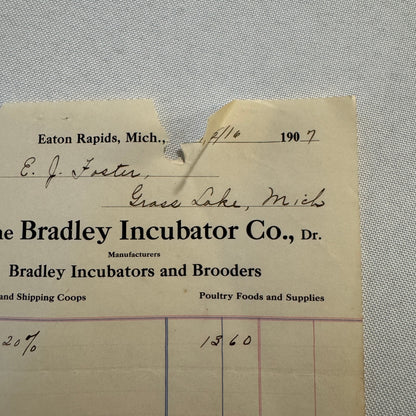 Eaton Rapids, Mich., 9/16 1907
E. J. Foster,
Grass Lake, Mich
Bradley Incubator Co., Dr.
Manufacturers
Bradley Incubators and Brooders
and Shipping Coops Poultry Foods and Supplies
20% 13 60